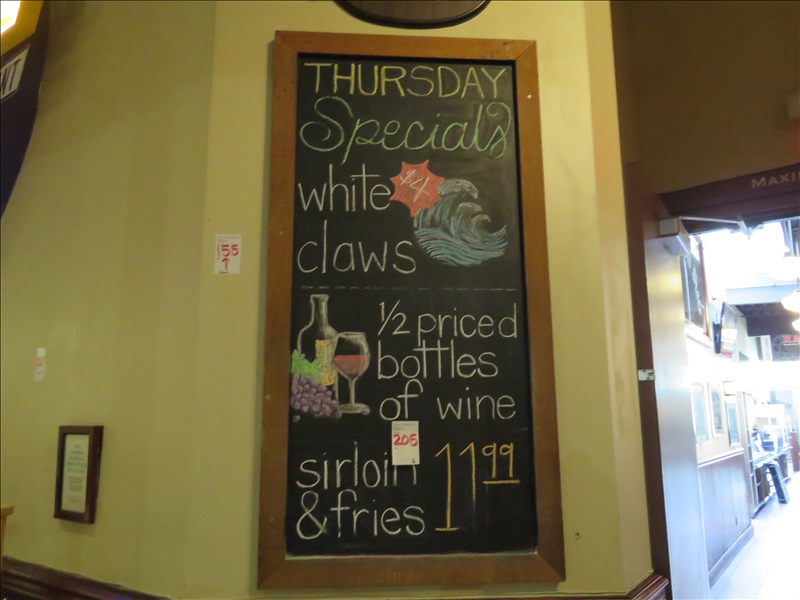 THURSDAY
Specials
white
$4
claws
1/2 priced
bottles
of wine
sirloin
& fries
11.99
155
205
MAXI